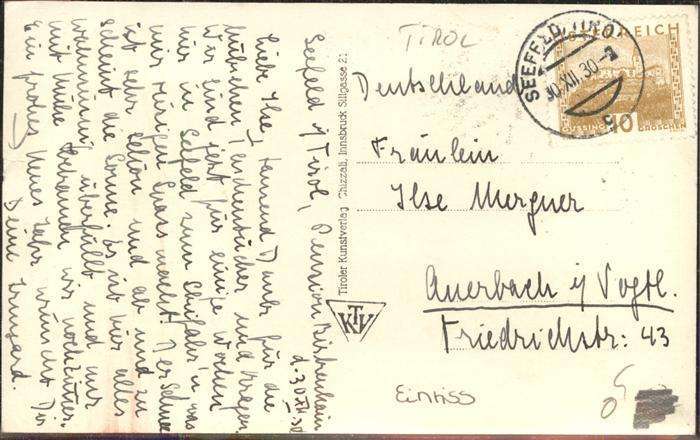 Seefeld i/Tirol, Pension Birkenhain
d. 30 XII. 30
Liebe Ilse, tausend Dank für die
hübschen Taschentücher und Kragen.
Wir sind jetzt für einige Wochen
hier in Seefeld zum Schifahr'n, was
mir riesigen Spass macht! Der Schnee
ist sehr schön und ab und zu
scheint die Sonne. Es ist hier alles
wahnsinnig überfüllt und nur
mit Mühe bekamen wir noch Zimmer.
Ein frohes Neues Jahr wünscht Dir
Deine Irmgard.
Tiroler Kunstverlag Chizzali, Innsbruck Sillgasse 21
TKV
TIROL
ÖSTERREICH
SEEFELD, TIROL
30.XII.30
GÜSSING
10
GROSCHEN
Deutschland
Fräulein
Ilse Mergner
Auerbach i/Vogtl.
Friedrichstr: 43
Einriss